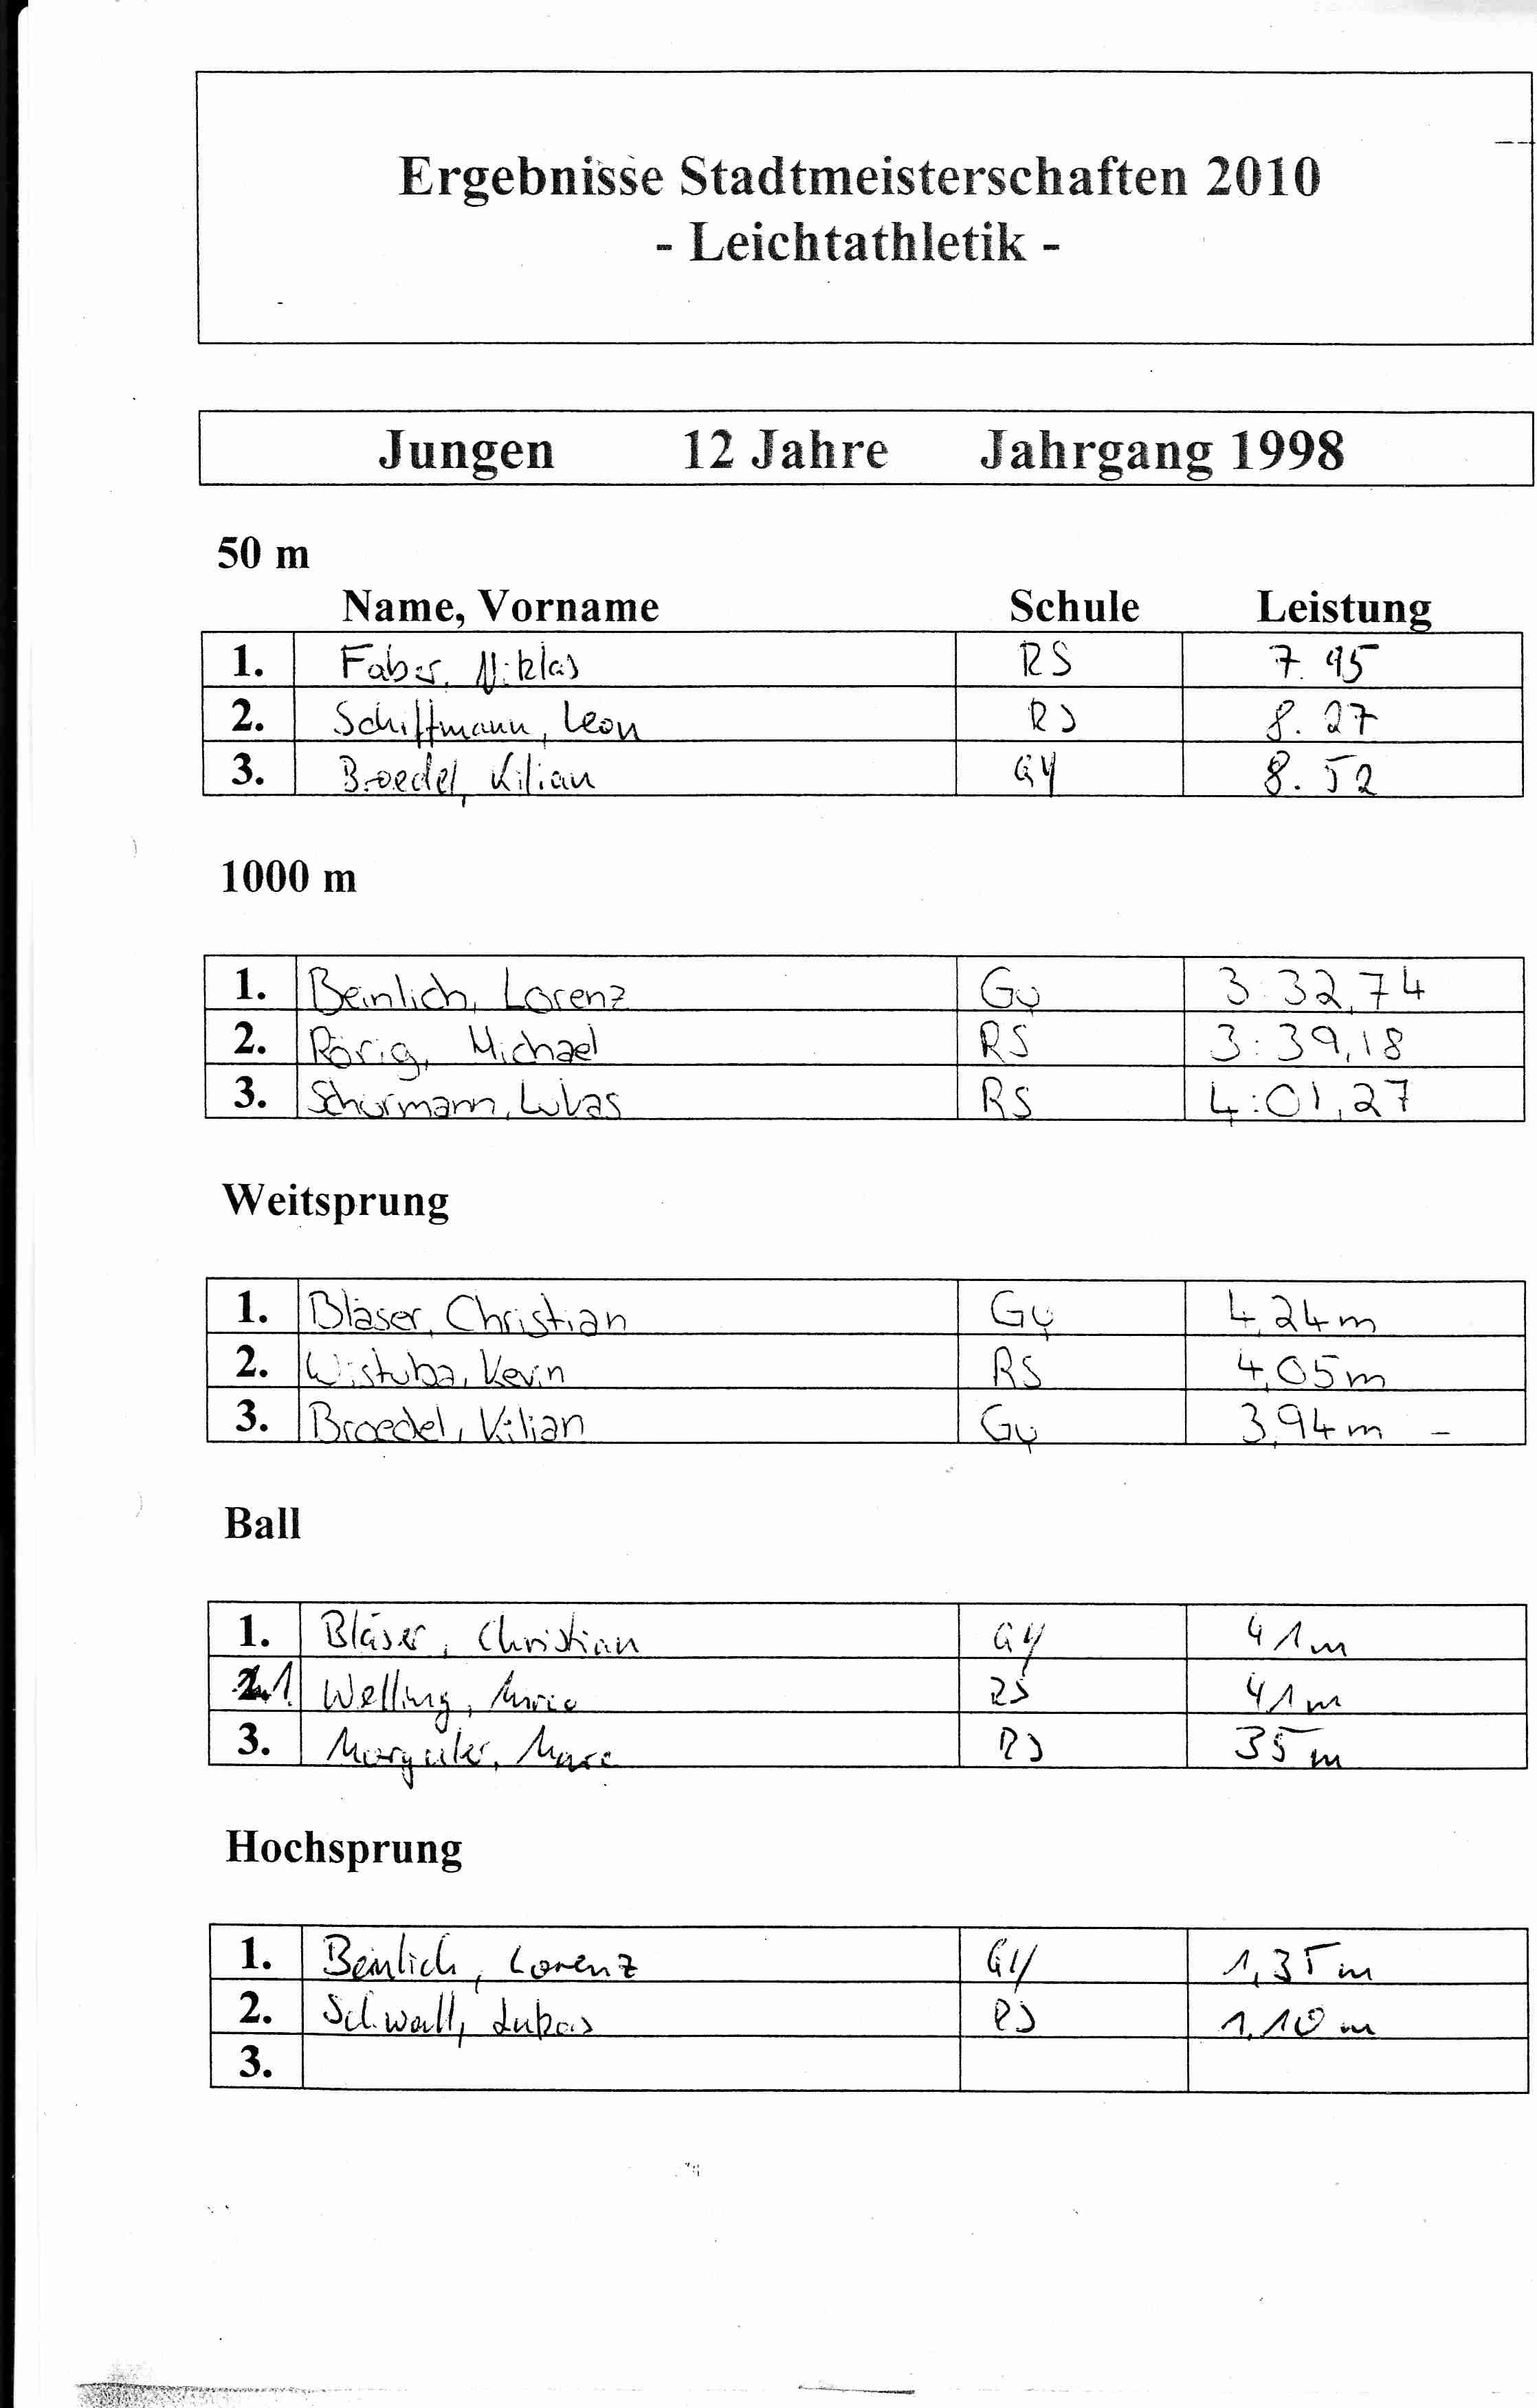 Ergebnisse Stadtmeisterschaften 2010
- Leichtathletik -
Jungen 12 Jahre Jahrgang 1998
50 m
Name, Vorname Schule Leistung
1. Faber, Niklas RS 7.95
2. Schiffmann, Leon RS 8.27
3. Broedel, Kilian GY 8.52
1000 m
1. Beinlich, Lorenz Gy 3:32,74
2. Rörig, Michael RS 3:39,18
3. Schürmann, Lukas RS 4:01,27
Weitsprung
1. Bläser, Christian Gy 4,24m
2. Wistuba, Kevin RS 4,05m
3. Broedel, Kilian Gy 3,94m -
Ball
1. Bläser, Christian GY 41m
1. Welling, RS 41m
3. Marc RS 35m
Hochsprung
1. Beinlich, Lorenz GY 1,35m
2. Schwall, Lukas RS 1,10m
3.